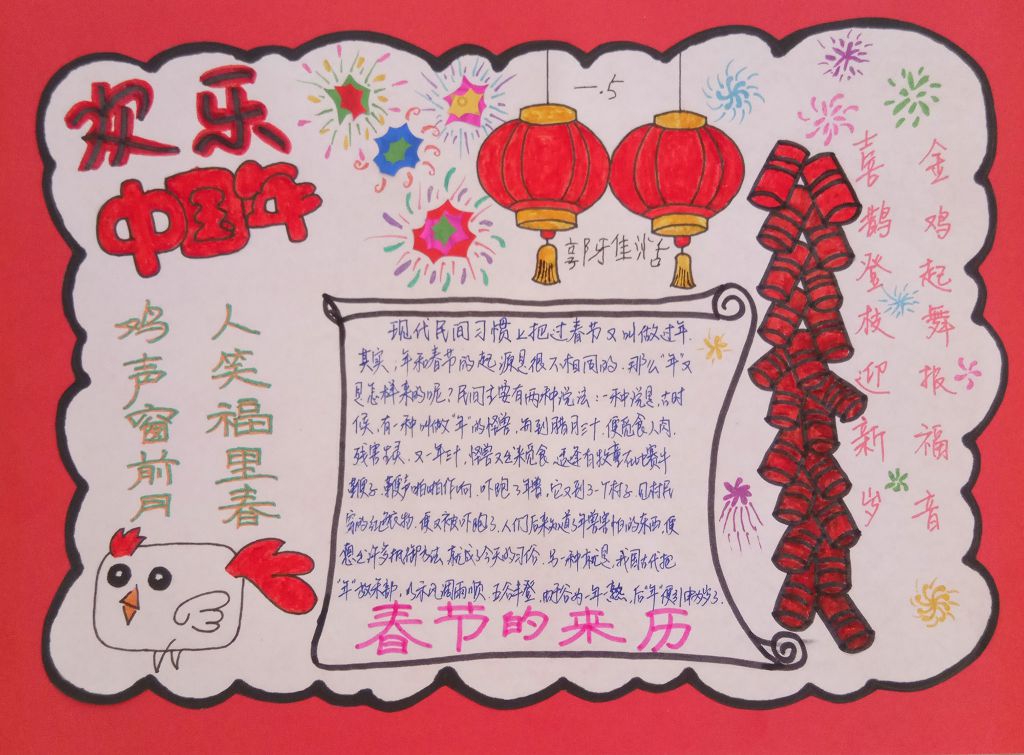 欢乐
中国年
一.5
郭雅佳
人笑福里春
鸡声窗前月
金鸡起舞报福音
喜鹊登枝迎新岁
现代民间习惯上把过春节又叫做过年.
其实,年和春节的起源是很不相同的.那么"年"又
是怎样来的呢?民间主要有两种说法:一种说是,古时
候,有一种叫做"年"的怪兽,每到腊月三十,便觅食人肉,
残害.又一年三十,怪兽又出来觅食,适逢有牧童在比赛牛
鞭子,鞭声啪啪作响,吓跑了年兽,它又到了一个村子,见村民
家的红色衣物,便又被吓跑了.人们后来知道了年兽害怕的东西,便
想出许多抵御办法,就成了今天的习俗.另一种就是,我国古代把
"年"放禾部,以示风调雨顺,五谷丰登.因谷为一年一熟,后"年"便引申为岁了.
春节的来历